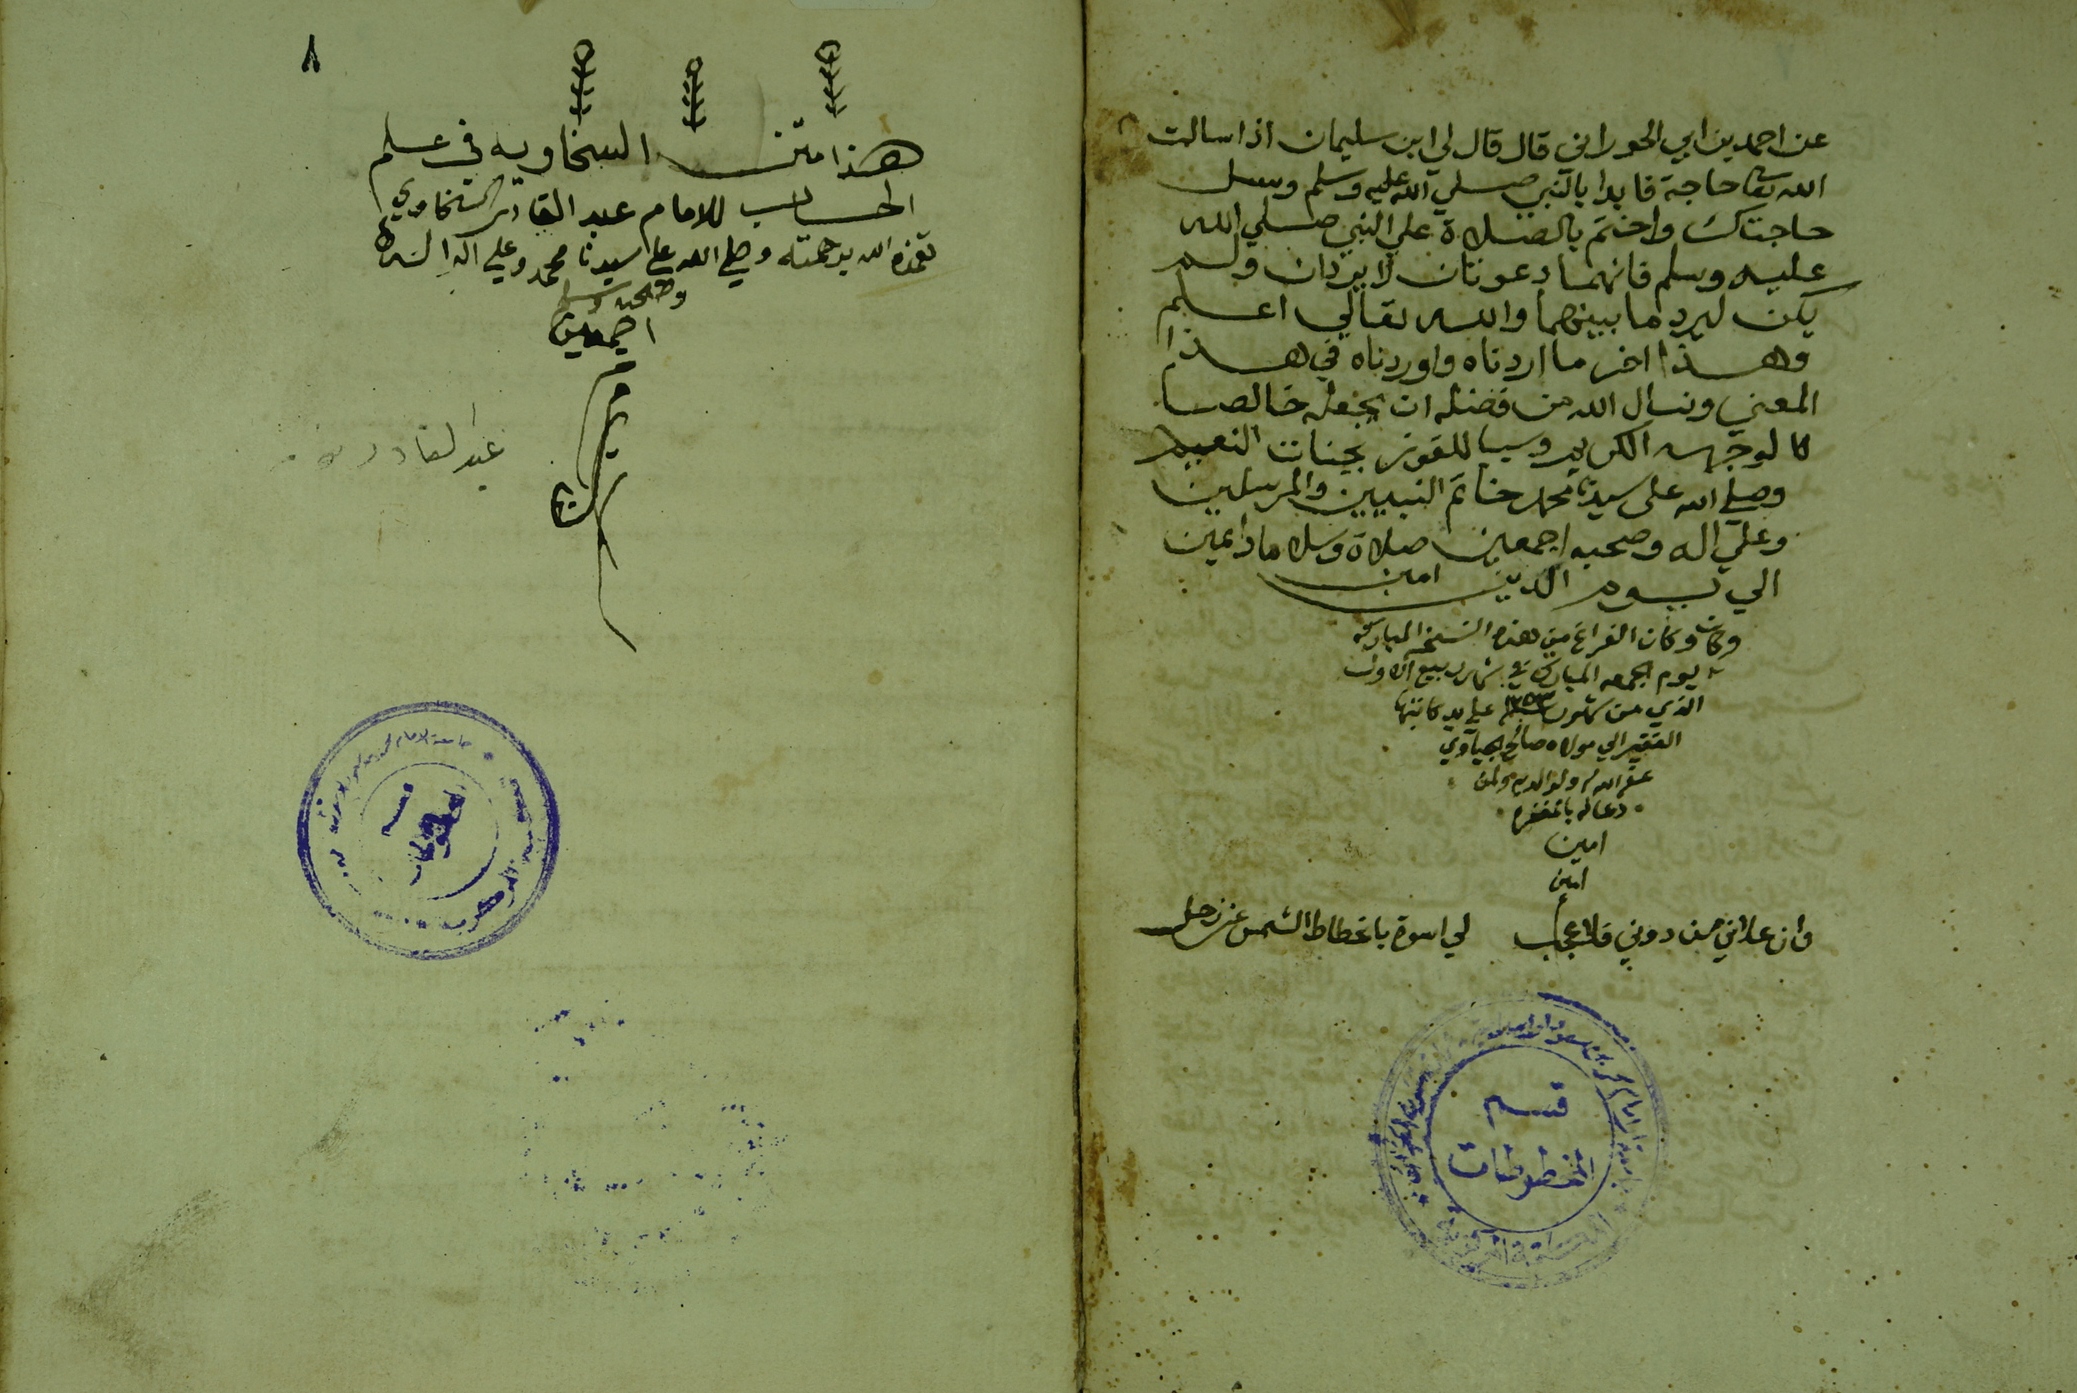 عن احمد بن ابي الحوراني قال قال لي ابن سليمان اذا سالت
الله تعا حاجة فابدا بالنبي صلي الله عليه وسلم وسل
حاجتك واختم بالصلاة علي النبي صلي الله
عليه وسلم فانهما دعوتان لا يردان ولم
يكن ليرد ما بينهما والله تعالي اعلم
وهذا اخر ما اردناه واوردناه في هذا
المعني ونسال الله من فضله ان يجعله خالصا
لوجهه الكريم وسببا للفوز بجنات النعيم
وصلي الله على سيدنا محمد خاتم النبيين والمرسلين
وعلي اله وصحبه اجمعين صلاة وسلاما دايمين
الي يوم الدين امين
وكان وكان الفراغ من هذه النسخه المباركه
يوم الجمعه المباركه في شهر ربيع الاول
الذي من شهور علي يد كاتبها
الفقير الي مولاه صالح
غفر الله له ولوالديه ولمن
دعا له بالمغفره
امين
امين
وان علاني من دوني فلا عجب لي اسوة بانحطاط الشمس عن زحل
قسم
المخطوطات
٨
هذا متن السخاويه في علم
الحساب للامام عبد القادر السخاوي
تغمده الله برحمته وصلي الله علي سيدنا محمد وعلي اله
وصحبه وسلم
اجمعين
عبد القادر
قسم
المخطوطات